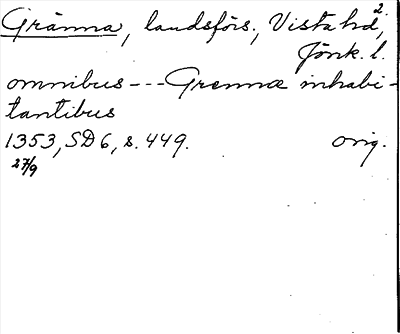 Gränna, landsförs., Vista hd, 2
Jönk. l.
omnibus --- Grennæ inhabi-
tantibus
1353, SD 6, s. 449. orig.
27/9